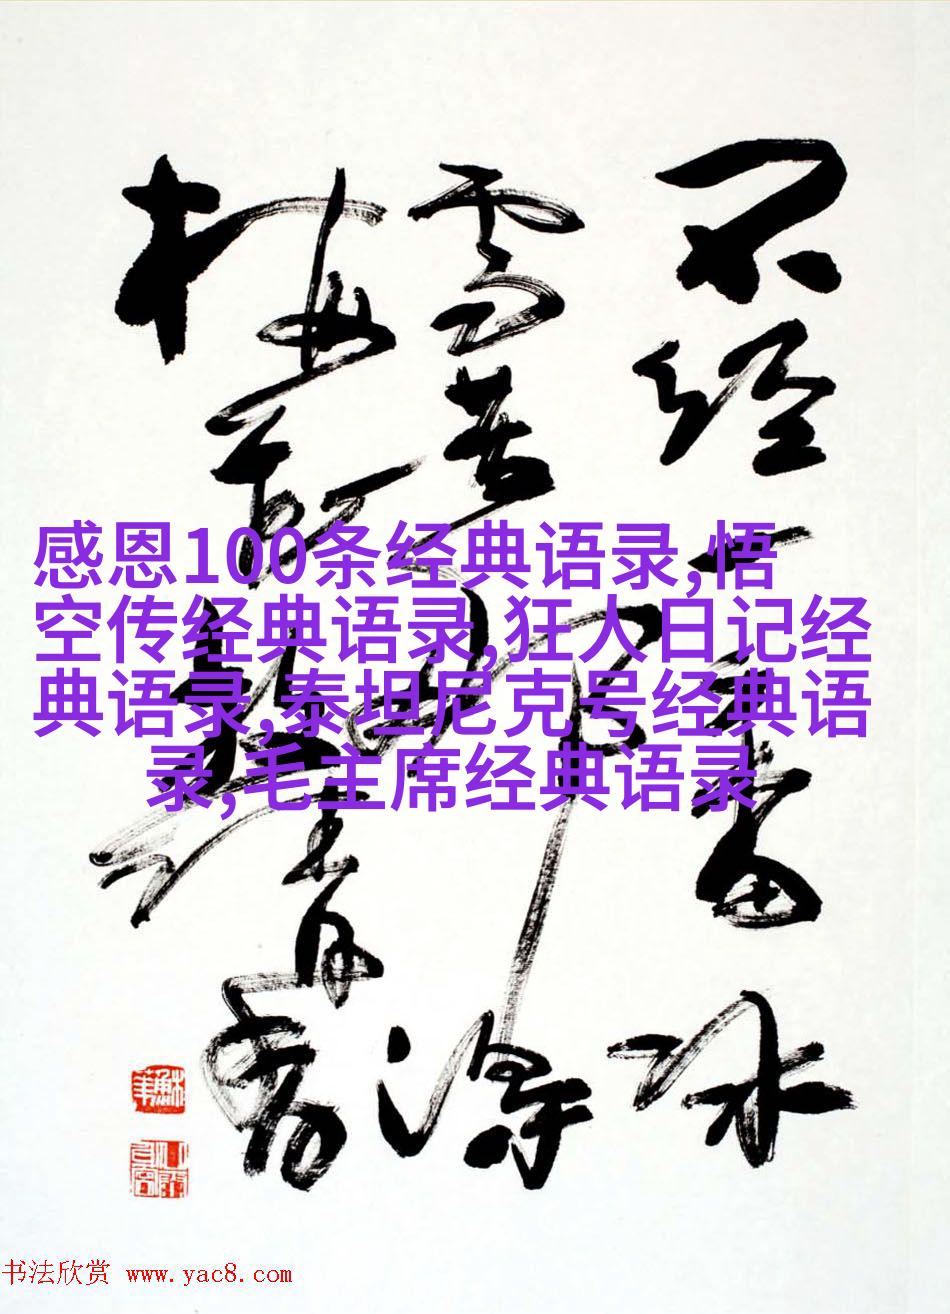 不经一番冰
雪苦那得
梅清香
感恩100条经典语录,悟
空传经典语录,狂人日记经
典语录,泰坦尼克号经典语
录,毛主席经典语录
书法欣赏 www.yac8.com